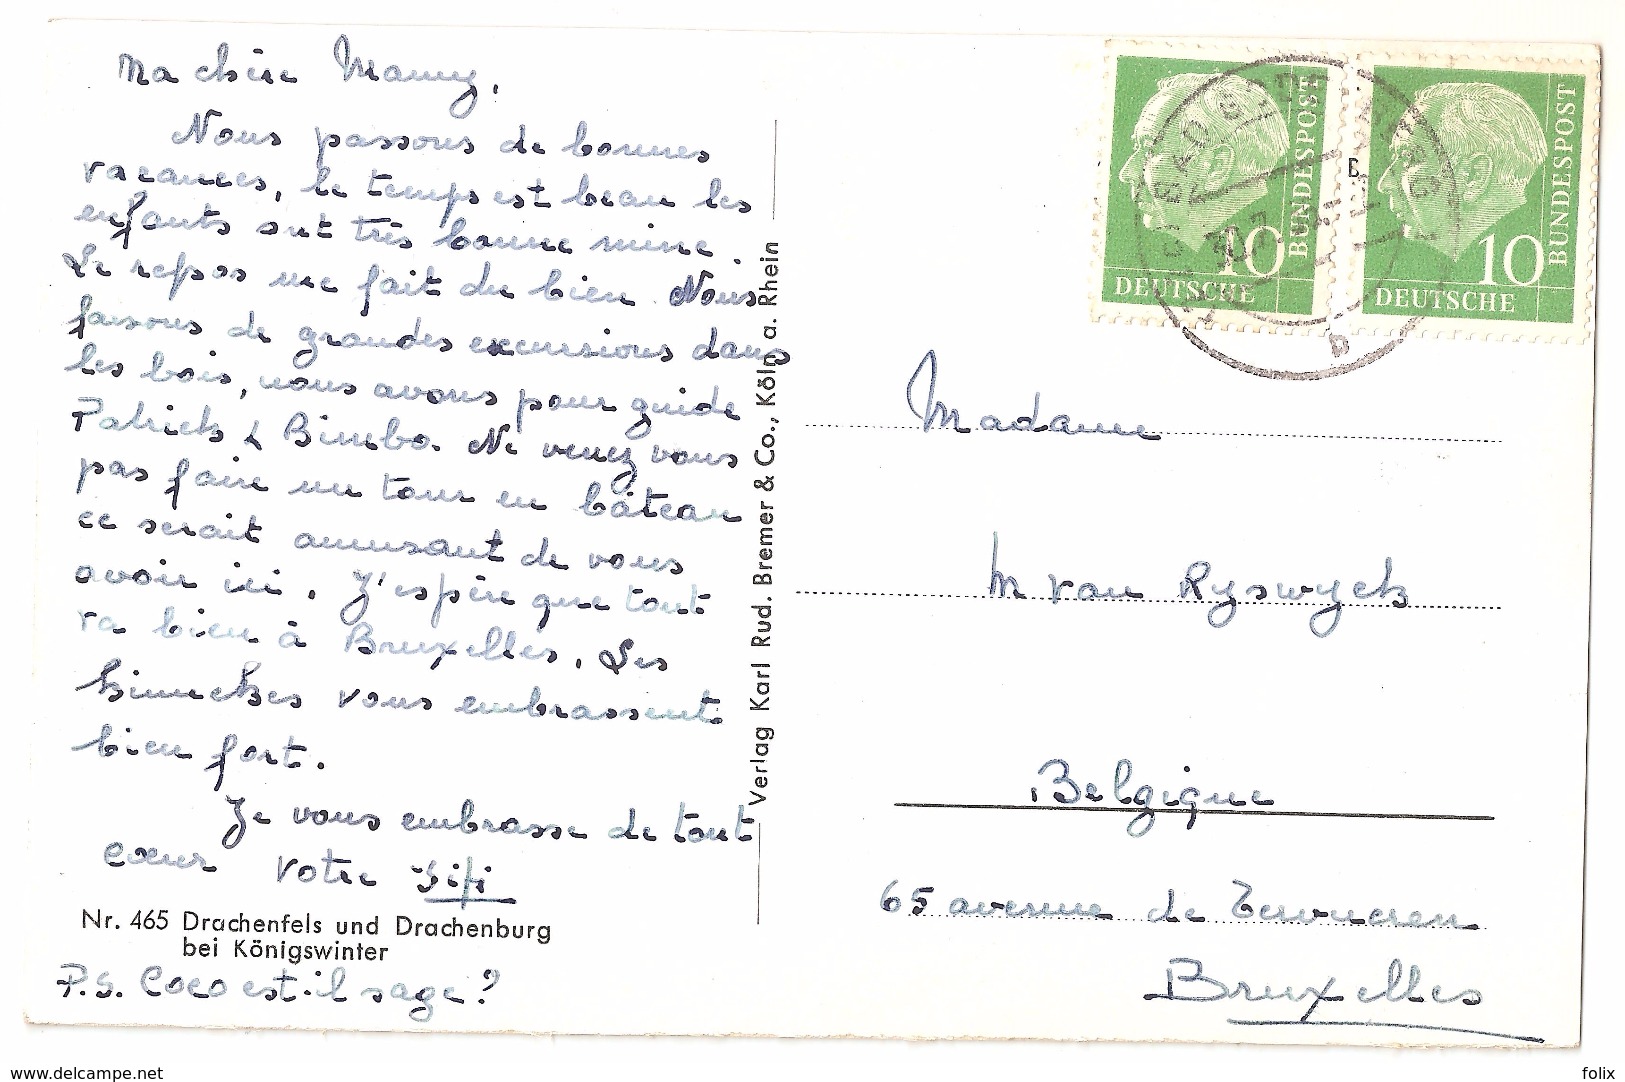 Ma chère Mamy,
Nous passons de bonnes
vacances, le temps est beau les
enfants ont très bonne mine.
Le repos me fait du bien. Nous
faisons de grandes excursions dans
les bois, nous avons pour guide
Patrick & Bimbo. Ne venez vous
pas faire un tour en bâteau
ce serait amusant de vous
avoir ici. J'espère que tout
va bien à Bruxelles. Les
kinnekes vous embrassent
bien fort.
Je vous embrasse de tout
cœur votre Fifi
Nr. 465 Drachenfels und Drachenburg
bei Königswinter
P.S. Coco est-il sage?
Verlag Karl Rud. Bremer & Co., Köln a. Rhein
DEUTSCHE BUNDESPOST 10
DEUTSCHE BUNDESPOST 10
Madame
M van Ryswyck
Belgique
65 avenue de Tervueren
Bruxelles
www.delcampe.net
folix